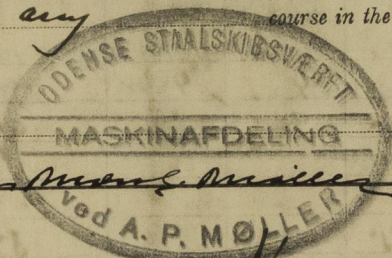 any course in the
ODENSE STAALSKIBSVÆRFT
MASKINAFDELING
Møller
ved A. P. MØLLER